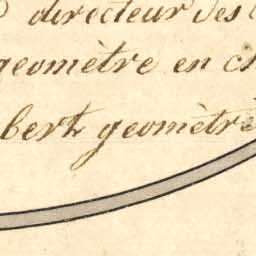 directeur des
geomètre en
bert geomètre